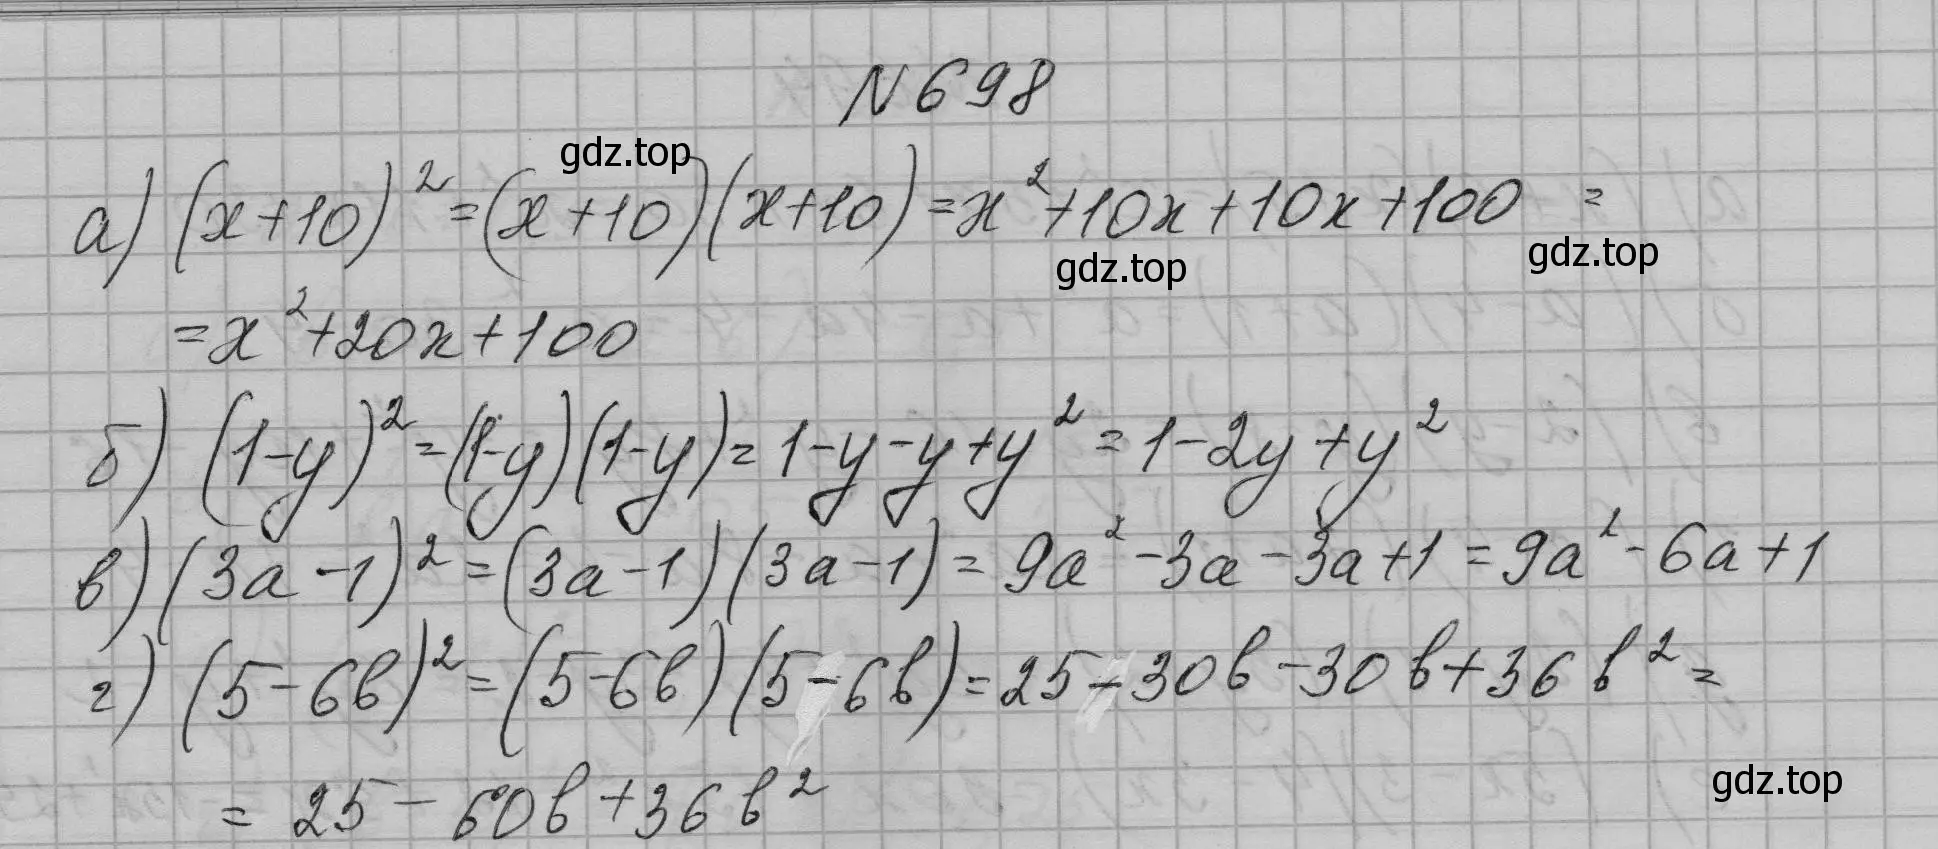 N 698
gdz.top
а) (x+10)² = (x+10)(x+10) = x²+10x+10x+100 =
gdz.top
gdz.top
= x²+20x+100
б) (1-y)² = (1-y)(1-y) = 1-y-y+y² = 1-2y+y²
в) (3a-1)² = (3a-1)(3a-1) = 9a²-3a-3a+1 = 9a²-6a+1
г) (5-6b)² = (5-6b)(5-6b) = 25-30b-30b+36b² =
gdz.top
= 25-60b+36b²